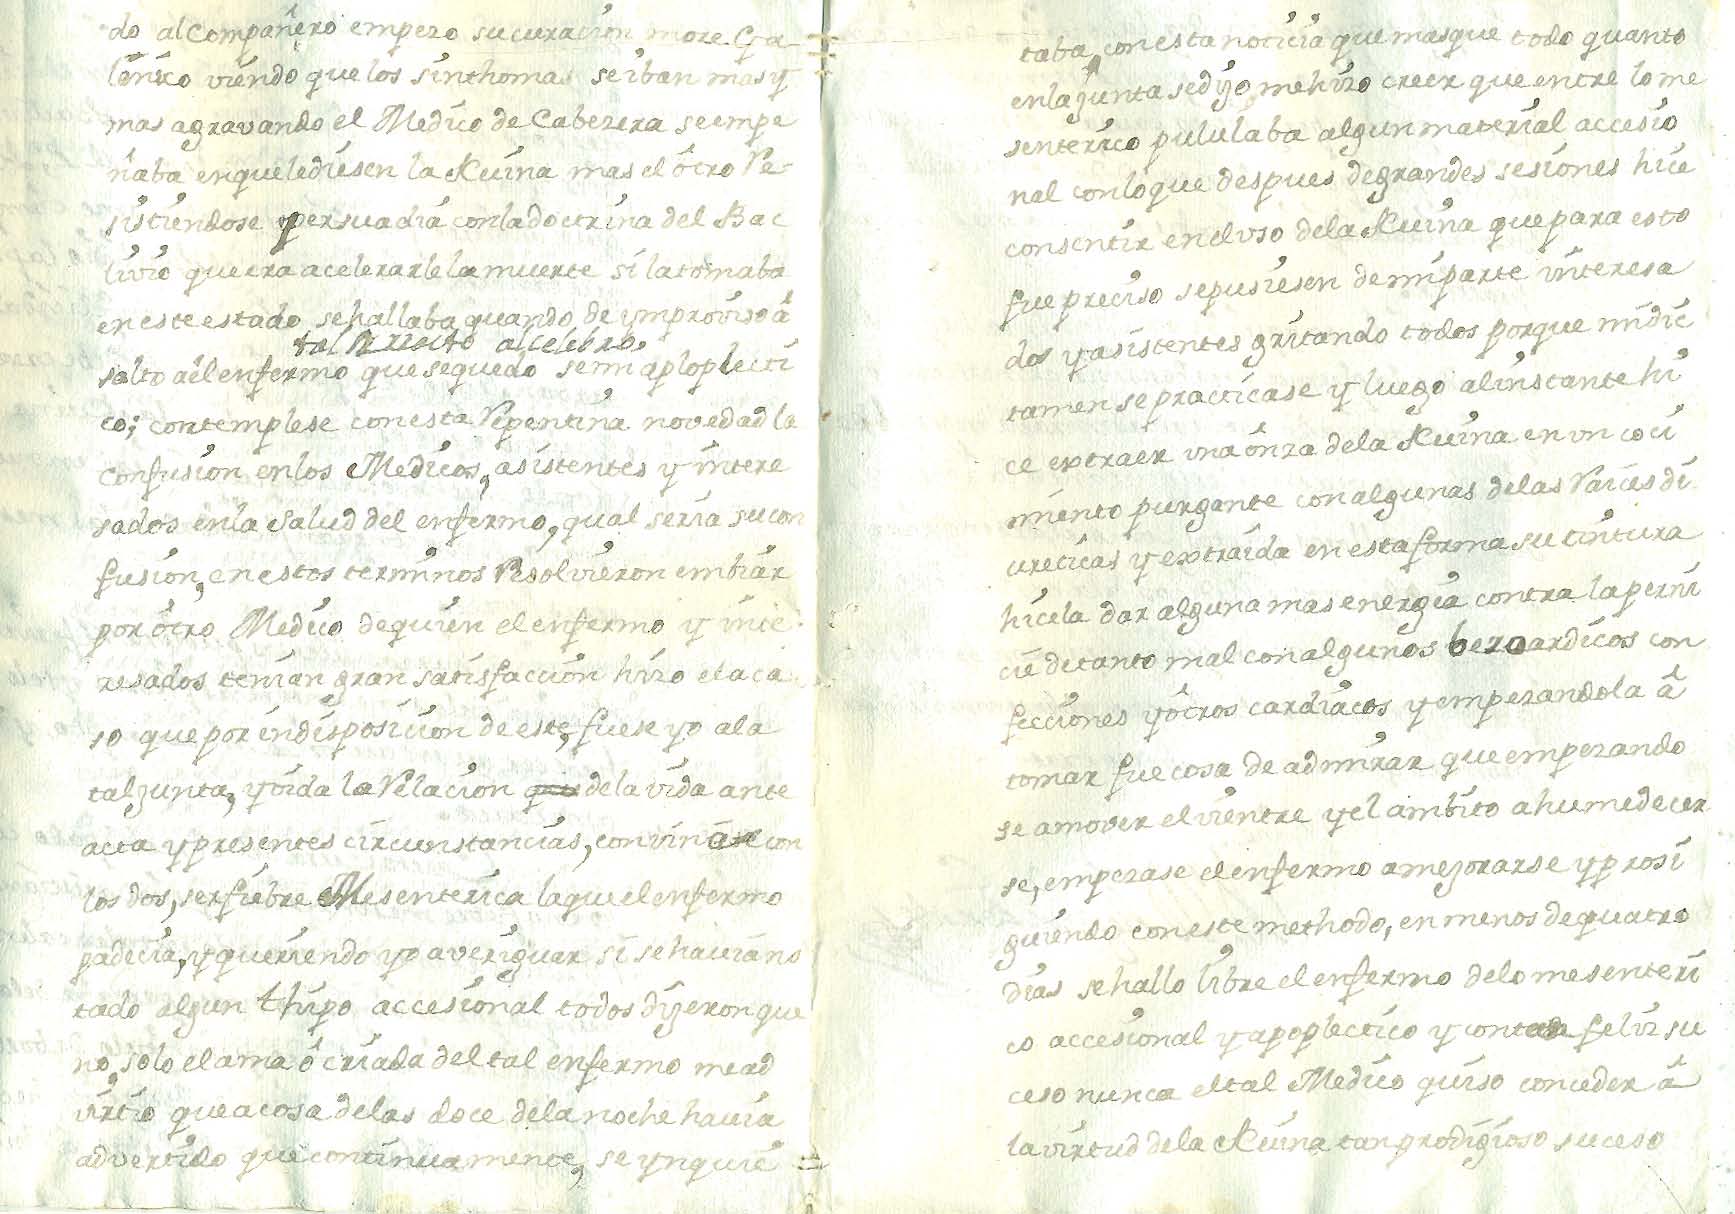 do al Compañero empezo su curacion more Ga
lenico viendo que los sinthomas se iban mas y
mas agravando el Medico de Cabezera se empe
ñaba en que le diesen la Kuina mas el ôtro Re-
sistiendose persuadia con la doctrina del Bac
livio que era acelerarle la muerte si la tomaba
en este estado se hallaba quando de ymproviso â
tal                al celebro
salto âel enfermo que se quedo semi aploplecti
co; contemplese con esta Repentina novedad la
confusion en los Medicos, asistentes y intere
sados en la Salud del enfermo, qual seria su con
fusion, en estos terminos Resolvieron embiar
por ôtro Medico de quien el enfermo y inte
resados tenian gran satisfaccion hizo el aca
so que por indisposicion de este, fuese yo a la
tal junta, y oida la Relacion de la vida ante
acta y presentes circunstancias, convine con
los dos, ser fiebre Mesenterica la que el enfermo
padecia, y queriendo yo averiguar si se havia no
tado algun thipo accesional todos dijeron que
no, solo el ama ô criada del tal enfermo me ad
virtio que a cosa de las doce de la noche havia
advertido que continuamente, se ynquie
taba, con esta noticia que mas que todo quanto
en la junta se dijo me hizo creer que entre lo me
senterico pululaba algun material accesio
nal con lo que despues de grandes sesiones hice
consentir en el uso de la Kuina que para esto
fue preciso se pusiesen de mi parte interesa
dos y asistentes gritando todos porque mi dic
tamen se practicase y luego al instante hi
ce extraer una ônza de la Kuina en un coci
miento purgante con algunas de las Raices di
ureticas y extraida en esta forma su tintura
hicela dar alguna mas energia contra la perni
cie de tanto mal con algunos bezoardicos con
fecciones y ôtros cardiacos y empezandola â
tomar fue cosa de admirar que empezando
se a mover el vientre y el ambito a humedecer
se, empezase el enfermo a mejorarse y prosi
guiendo con este methodo, en menos de quatro
dias se hallo libre el enfermo de lo mesenteri
co accesional y apoplectico y con tan feliz su
ceso nunca el tal Medico quiso conceder â
la virtud de la Kuina tan prodigioso suceso